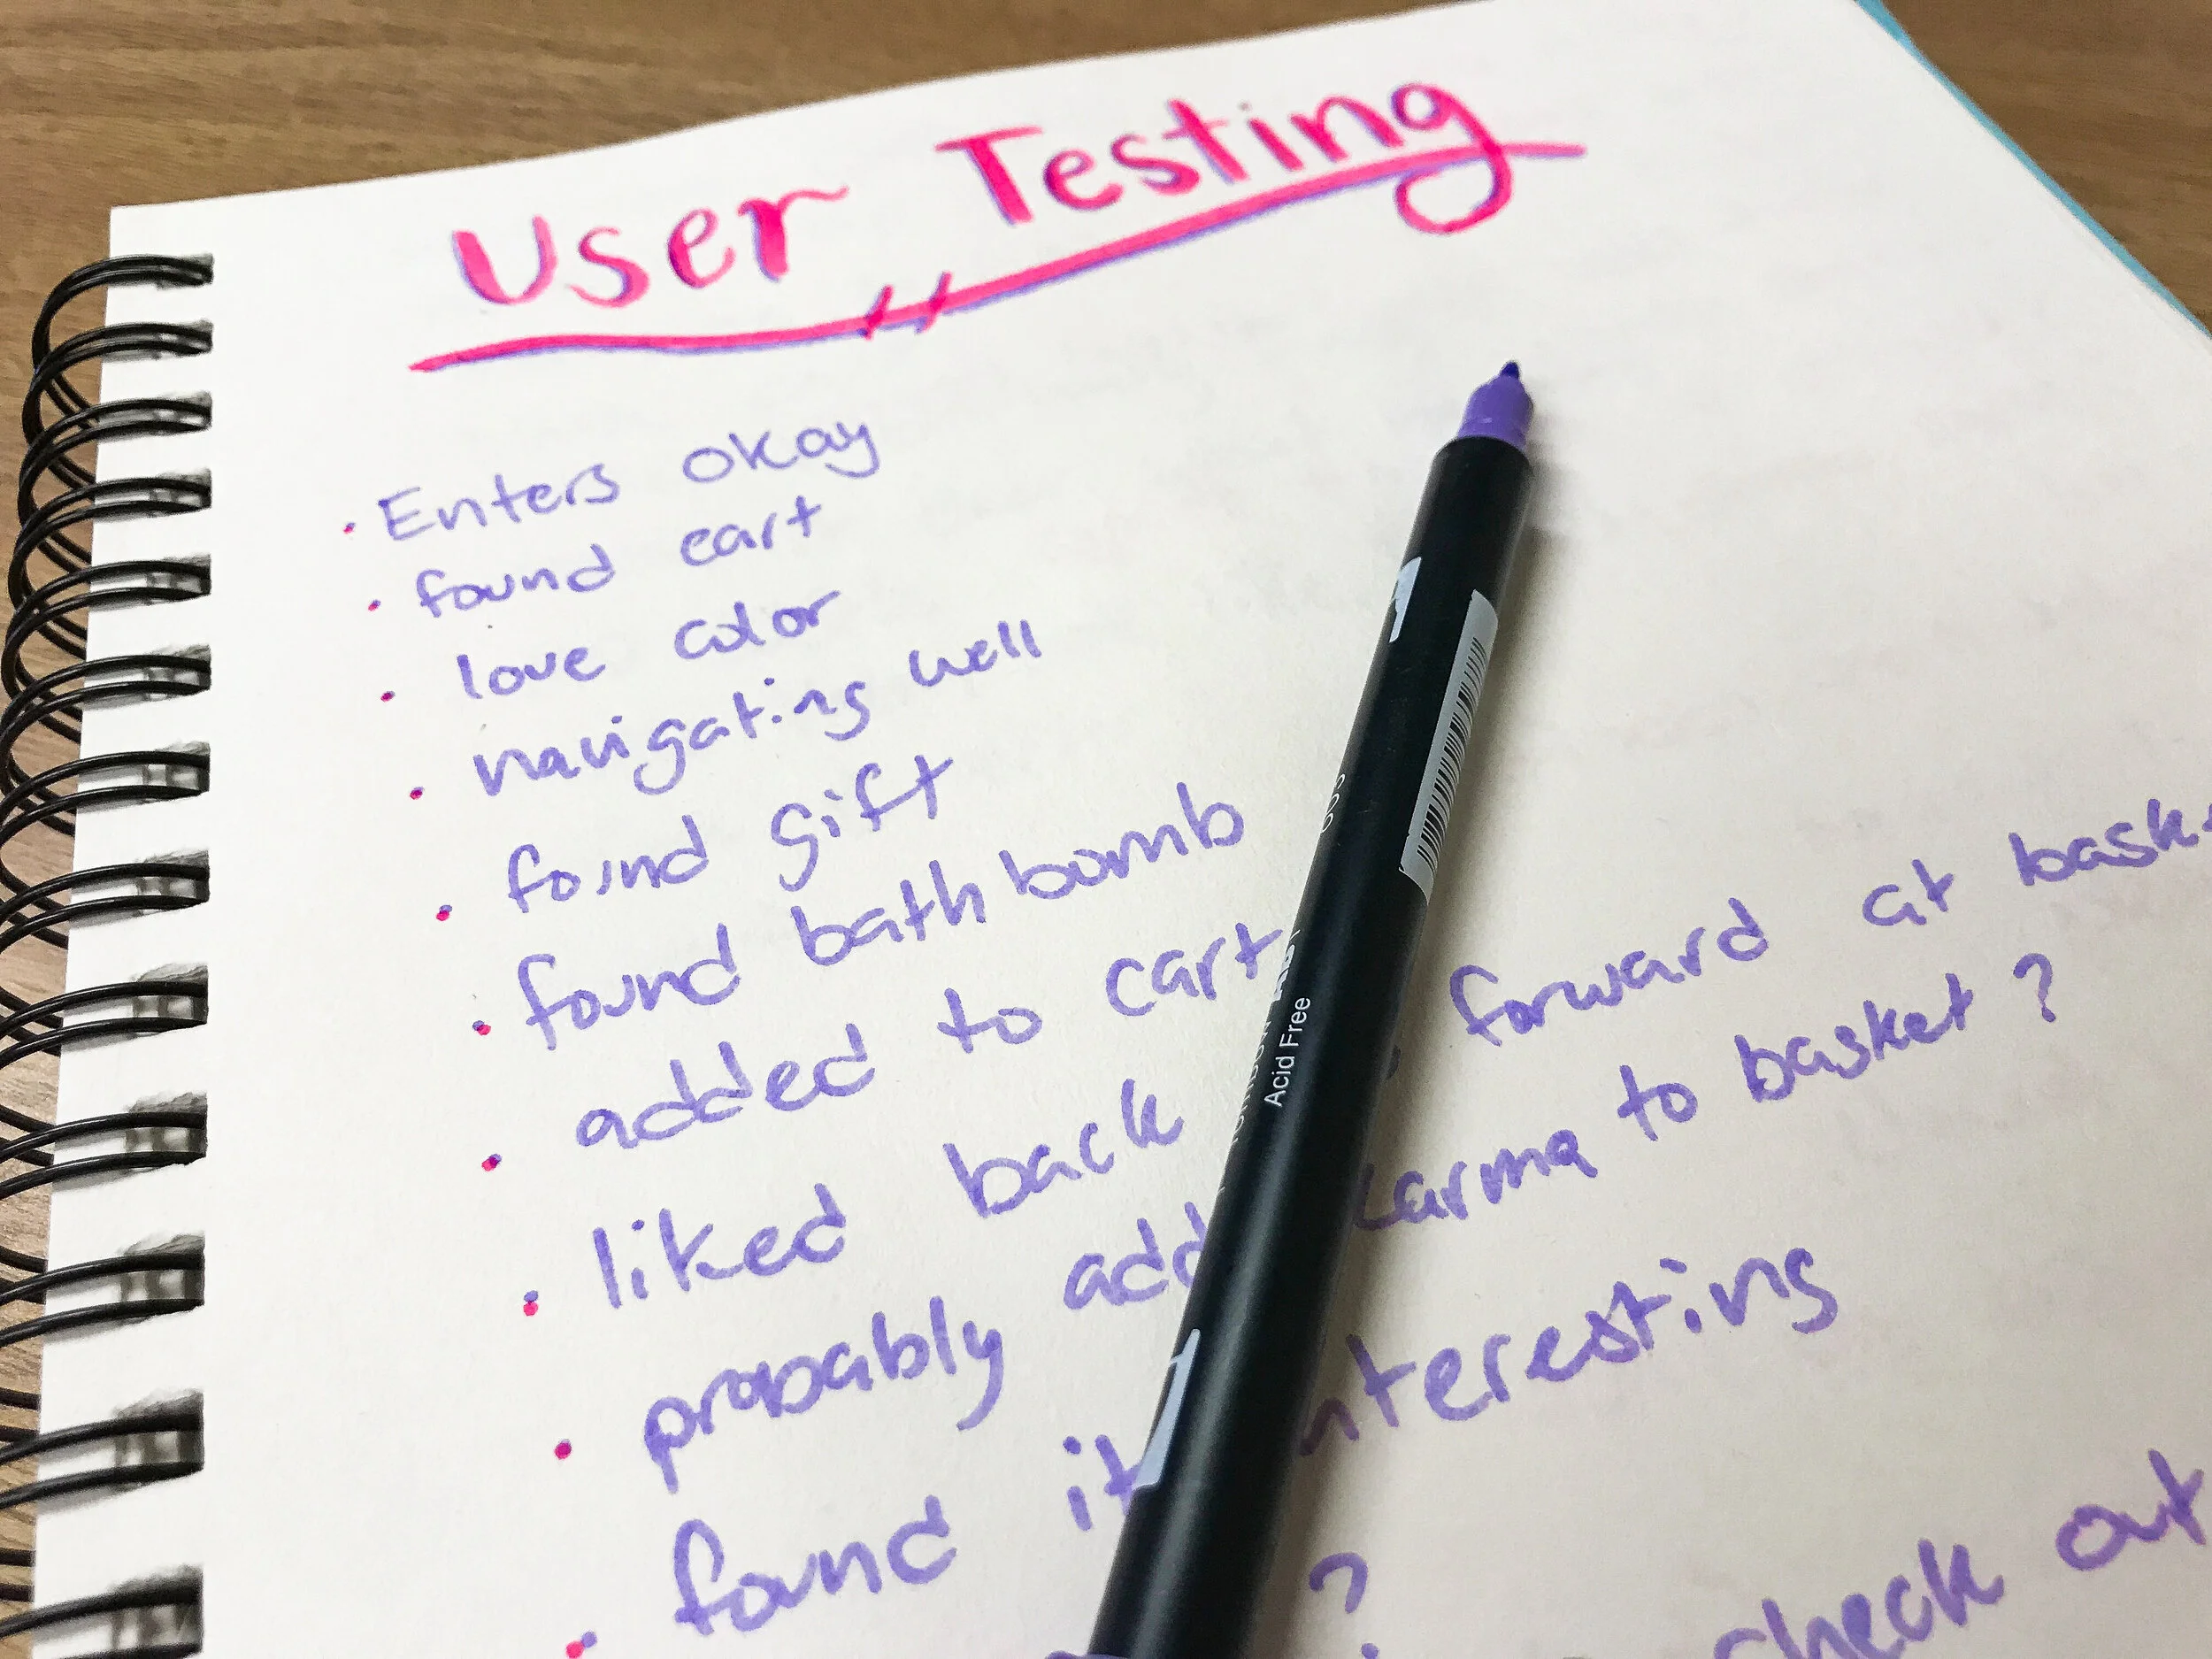 User Testing
• Enters okay
• found cart
• love color
• navigating well
• found gift
• found bath bomb
• added to cart
• liked back forward at
• probably add karma to basket?
• found it interesting
?
check out
Acid Free